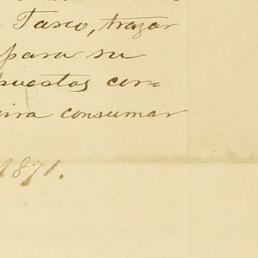 Tasco, trazar
para su
puestos con
consumar
1871.